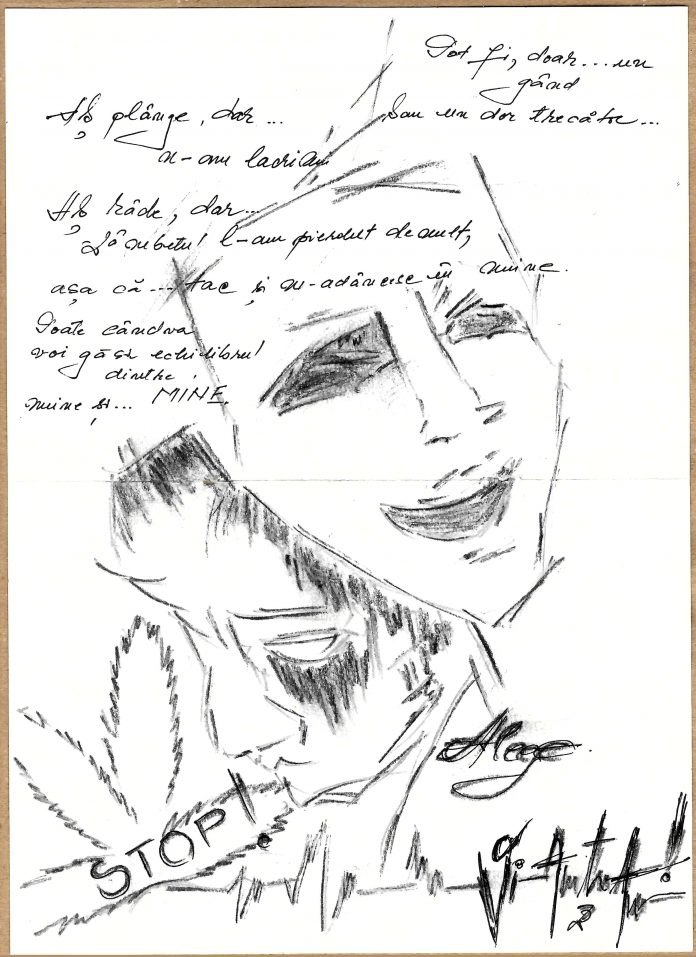 Pot fi, doar... un
gând
Sau un dor trecător...
Aș plânge, dar...
n-am lacrimi
Aș râde, dar...
Zâmbetul l-am pierdut demult,
așa că... tac și m-adâncesc în mine.
Poate cândva
voi găsi echilibrul
dintre
mine și... MINE.
Alege.
STOP!